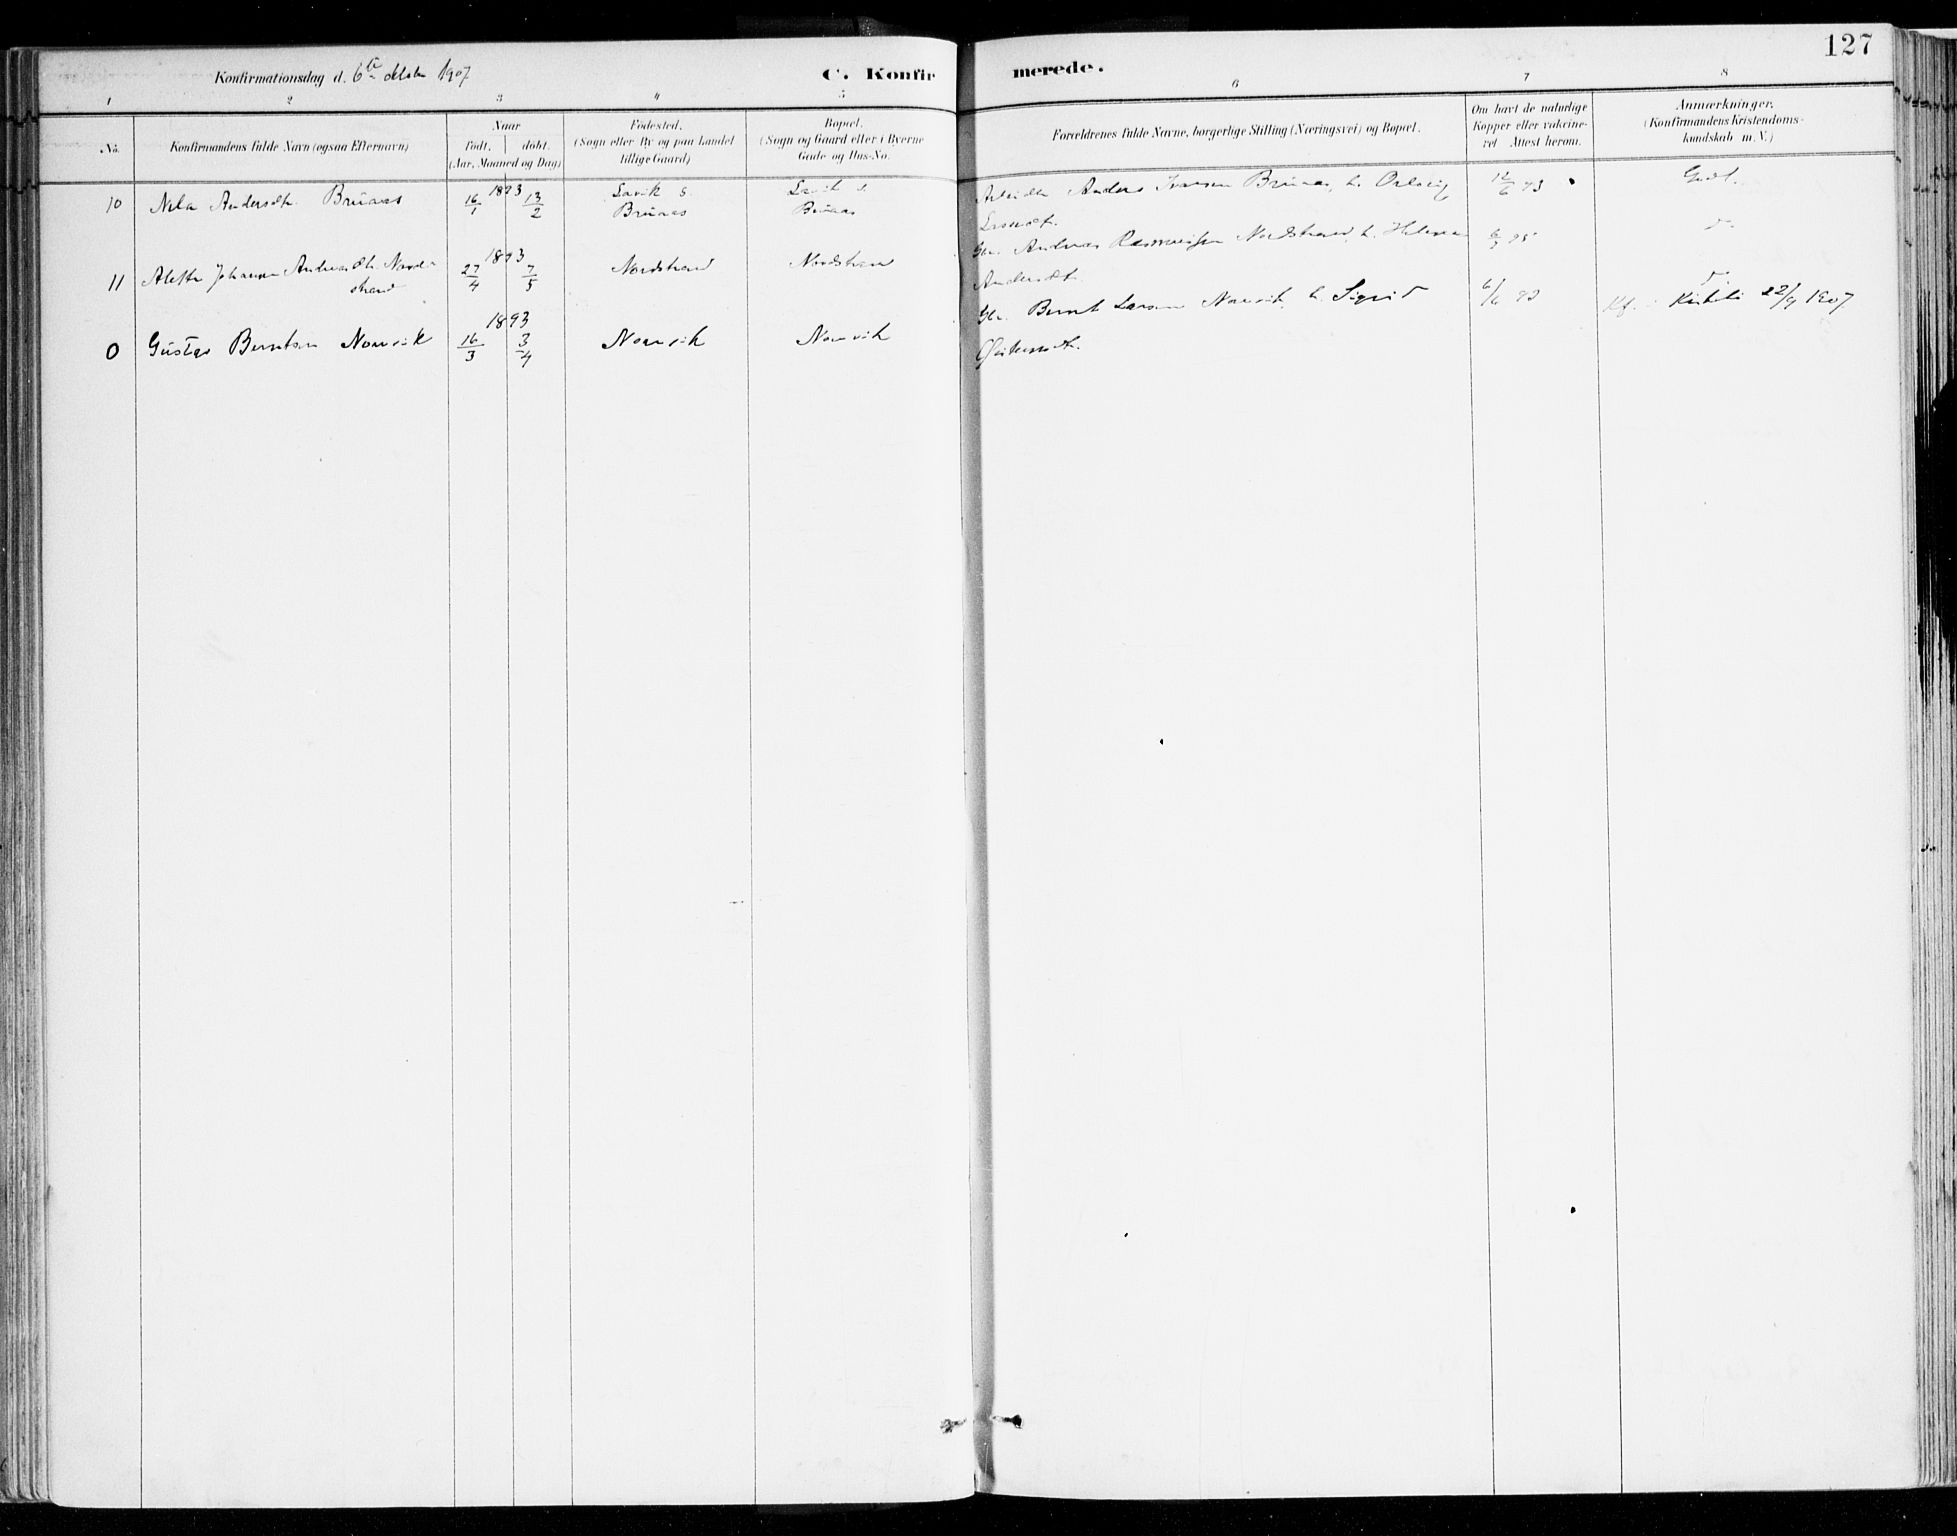 127
Konfirmationsdag d. 6te Oktober 1907
C. Konfirmerede.
1 2 3 4 5 6 7 8
No.
Konfirmandens fulde Navn (ogsaa Efternavn)
Naar
født. døbt.
(Aar, Maaned og Dag)
Fødested.
(Sogn eller By og paa Landet
tillige Gaard)
Bopæl.
(Sogn og Gaard eller i Byerne
Gade og Hus-No.
Forældrenes fulde Navne, borgerlige Stilling (Næringsvei) og Bopæl.
Om havt de naturlige
Kopper eller vakcine-
ret Attest herom.
Anmærkninger.
(Konfirmandens Kristendoms-
kundskab m. V.)
10 Andersdtr. Brünaas 1893 16/1 13/2 Lavik s.
Brünaas
Lavik s.
Brünaas
Arbeider Anders Iversen Brünaas, h.
Larsdtr.
12/6 93
Godt.
11 Johanna Andreasdtr. Nord-
strand
1893 27/4 7/5 Nordstrand Nordstrand
Gbr. Andreas Rasmussen Nordstrand, h. Helene
Andersdtr.
0 Gustav Berntsen Norevik 1893 16/3 3/4 Norevik Norevik
Gbr. Bernt Larsen Norevik, h. Sigrid
6/6 93
Kf. i 22/9 1907